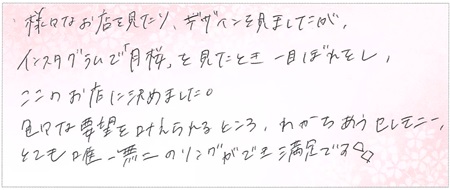 様々なお店を見たり、デザインを見ましたが、
インスタグラムで「月桜」を見たとき一目ぼれをし、
ここのお店に決めました。
色々な要望を叶えられるところ、わかちあうセレモニー、
とても唯一無二のリングができ満足です☆☆